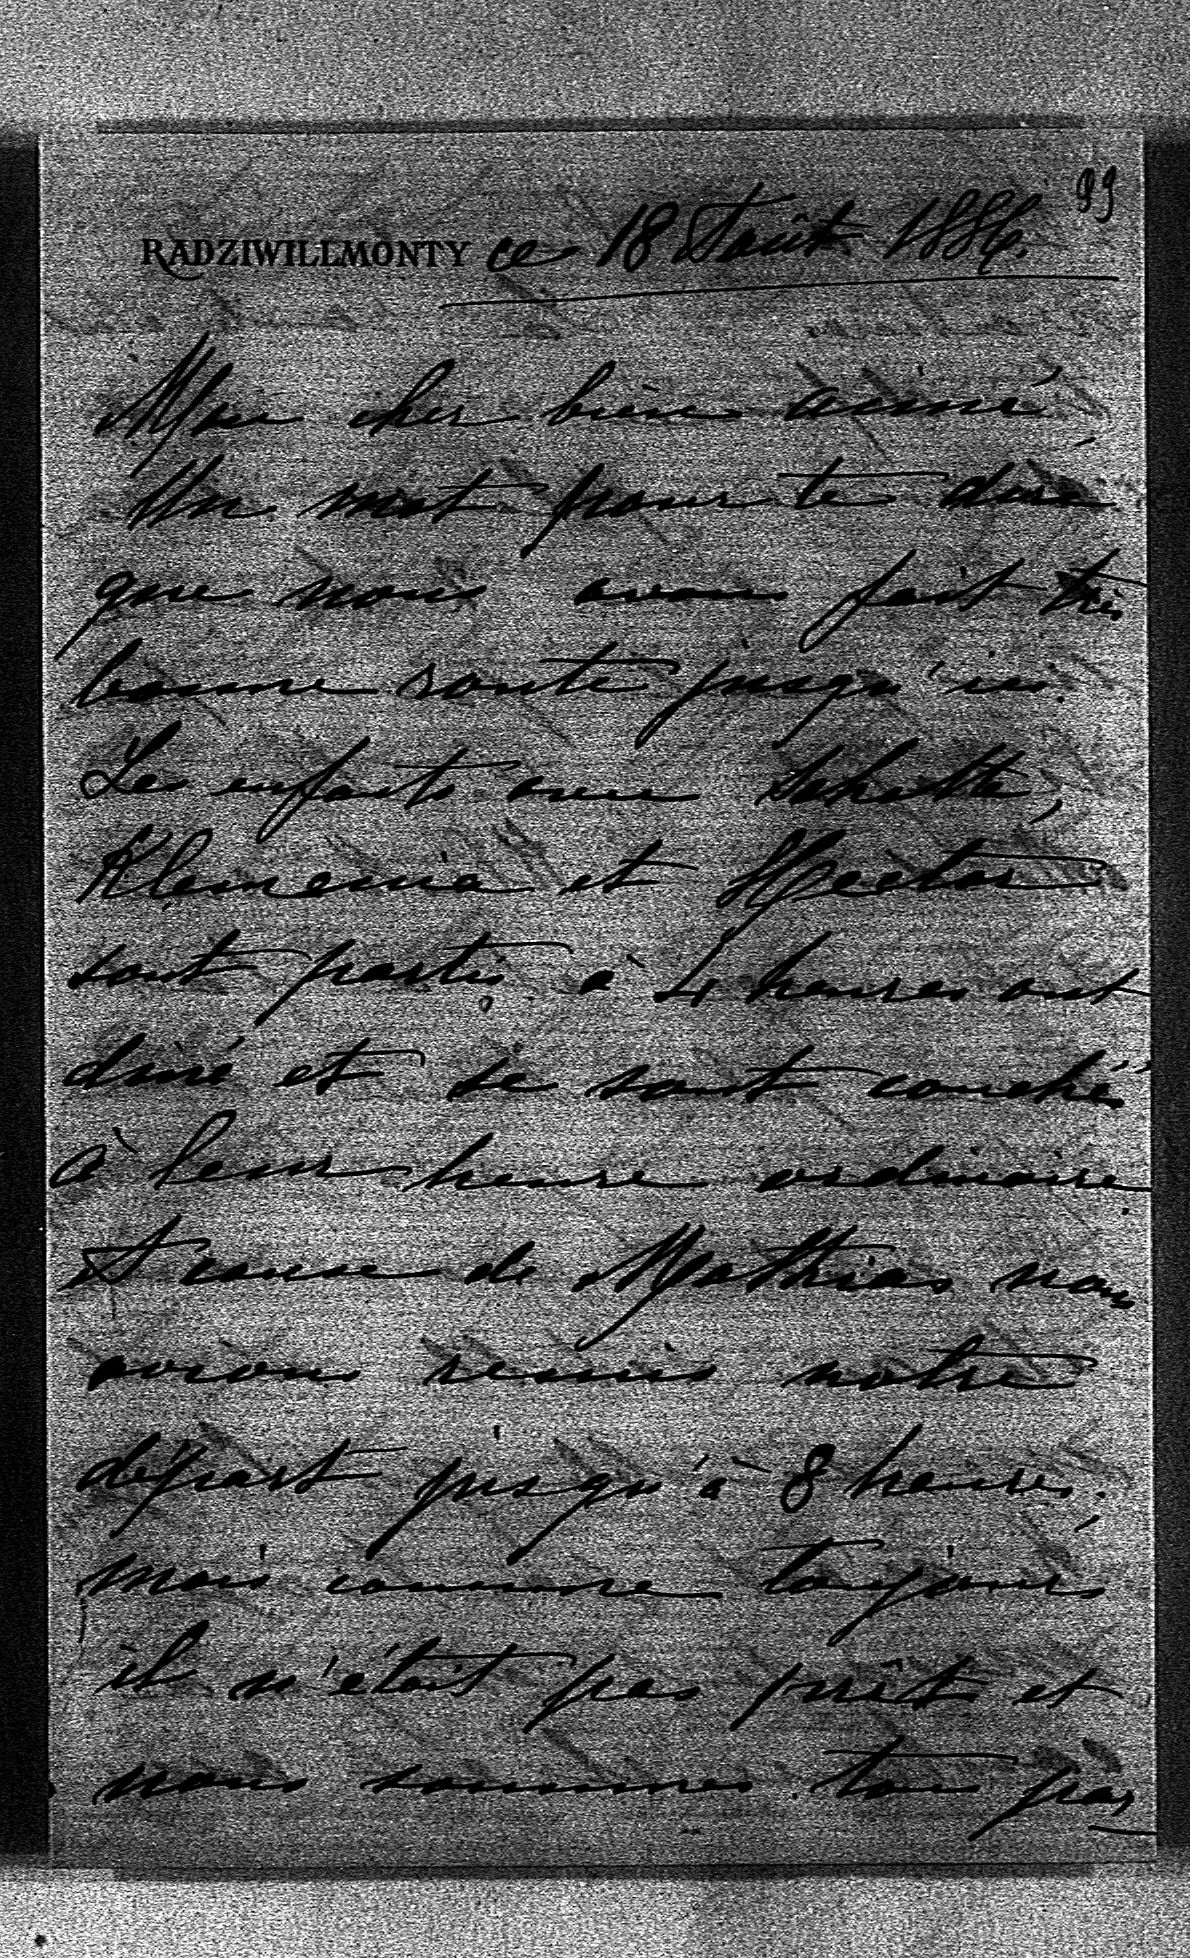 99
RADZIWILLMONTY ce 18 Août 1886.
Mon cher bien aimé,
Un mot pour te dire
que nous avons fait très
bonne route jusqu'ici.
Les enfants avec
Klemenia et Hector
sont partis à 4 heures ont
diné et se sont couchés
à leur heure ordinaire.
A cause de Mathias nous
avions remis notre
départ jusqu'à 8 heures;
mais comme toujours
il n'était pas prêt et
nous sommes tous par-